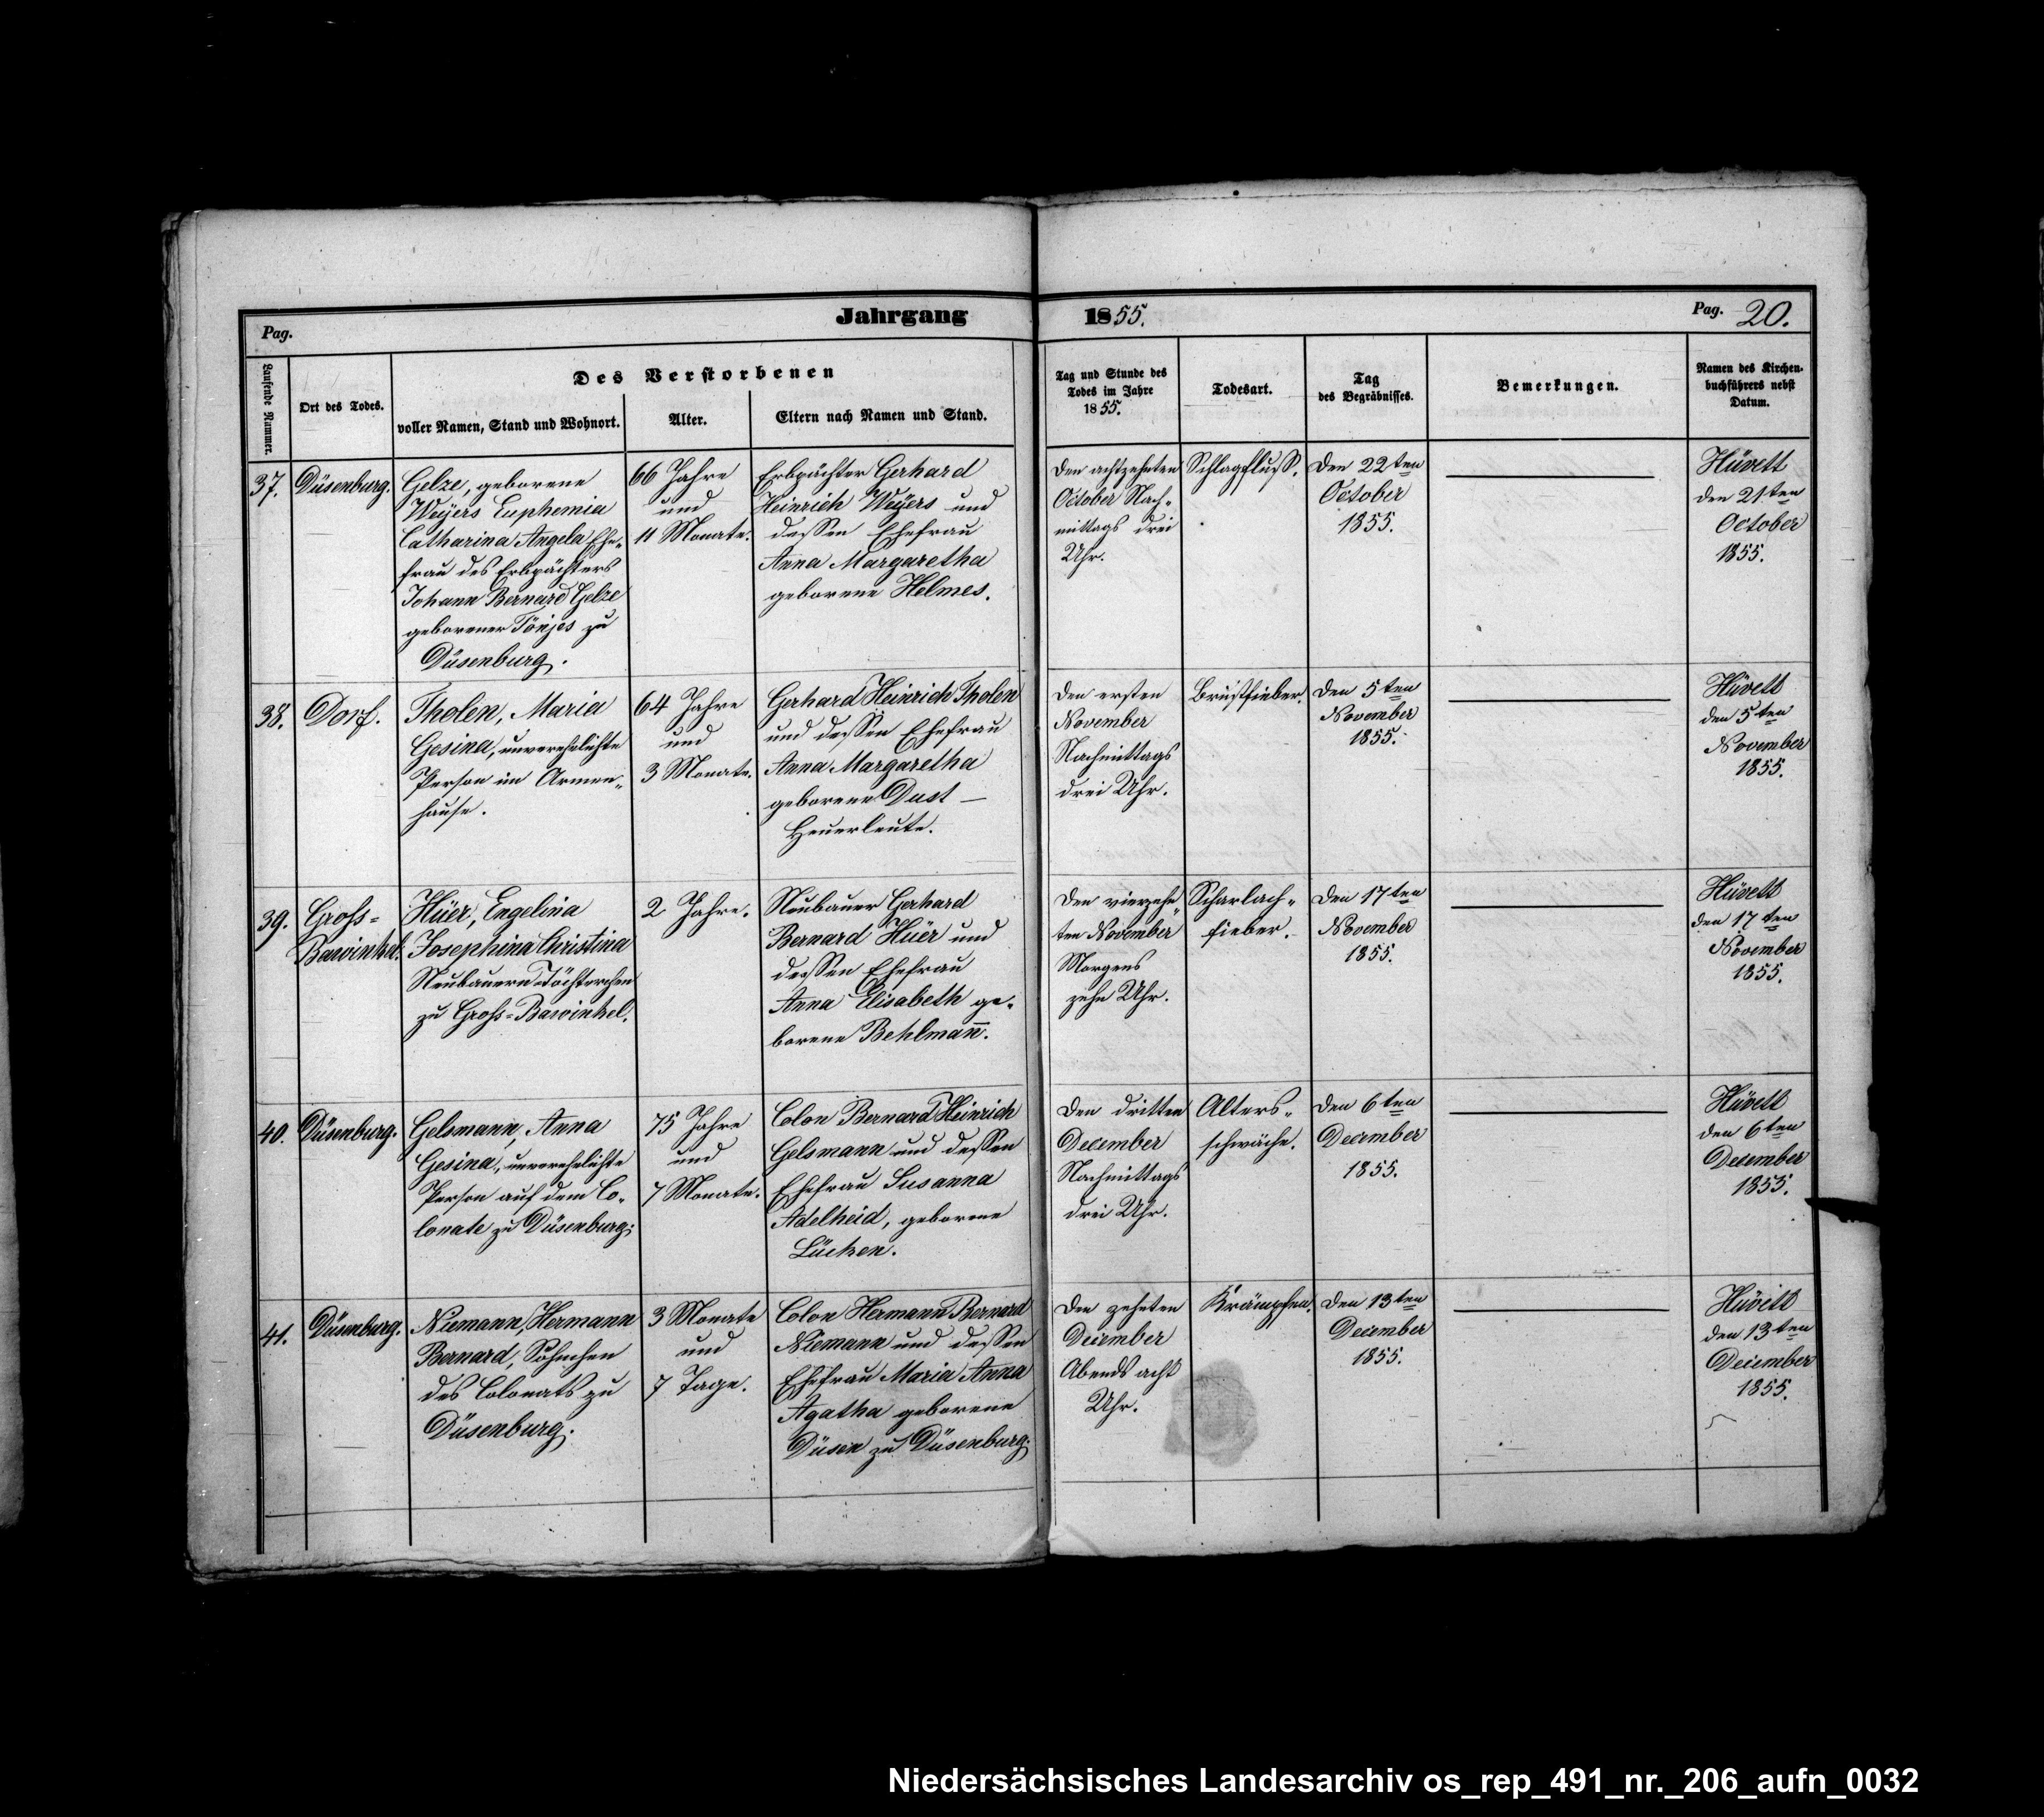 Jahrgang 1855.
Pag.
Pag. 20.
Laufende Nummer.
Ort des Todes.
Des Verstorbenen
voller Namen, Stand und Wohnort.
Alter.
Eltern nach Namen und Stand.
Tag und Stunde des
Todes im Jahre
1855.
Todesart.
Tag
des Begräbnisses.
Bemerkungen.
Namen des Kirchen-
buchführers nebst
Datum.
37.
Düsenburg.
Gelze, geborene
Weÿers Euphemia
Catharina Angela Ehe-
frau des Erbpächters
Johann Bernard Gelze
geborener Tönjes zu
Düsenburg.
66 Jahre
und
11 Monate.
Erbpächter Gerhard
Heinrich Weÿers und
dessen Ehefrau
Anna Margaretha
geborene Helmes.
Den achtzehnten
October Nach-
mittags drei
Uhr.
Schlagfluss.
Den 22ten
October
1855.
Hüvett
den 21ten
October
1855.
38.
Dorf.
Tholen, Maria
Gesina, unverehelichte
Person im Armen-
hause.
64 Jahre
und
3 Monate.
Gerhard Heinrich Tholen
und dessen Ehefrau
Anna Margaretha
geborene Dust —
Heuerleute.
Den ersten
November
Nachmittags
drei Uhr.
Brustfieber.
Den 5ten
November
1855.
Hüvett
den 5ten
November
1855.
39.
Groß-
Bawinkel.
Hüer, Engelina
Josephina Christina
Neubauern Töchterchen
zu Groß-Bawinkel.
2 Jahre.
Neubauer Gerhard
Bernard Hüer und
dessen Ehefrau
Anna Elisabeth ge-
borene Behlman̄.
Den vierzehn-
ten November
Morgens
zehn Uhr.
Scharlach-
fieber.
Den 17ten
November
1855.
Hüvett
den 17ten
November
1855.
40.
Düsenburg.
Gelsmann, Anna
Gesina, unverehelichte
Person auf dem Co-
lonate zu Düsenburg.
75 Jahre
und
7 Monate.
Colon Bernard Heinrich
Gelsmann und dessen
Ehefrau Susanna
Adelheid, geborene
Lücken.
Den dritten
December
Nachmittags
drei Uhr.
Alters-
schwäche.
Den 6ten
December
1855.
Hüvett
den 6ten
December
1855.
41.
Düsenburg.
Niemann, Hermann
Bernard, Söhnchen
des Colonats zu
Düsenburg.
3 Monate
und
7 Tage.
Colon Hermann Bernard
Niemann und dessen
Ehefrau Maria Anna
Agatha geborene
Düsen zu Düsenburg.
Den zehnten
December
Abends acht
Uhr.
Krämpfen.
Den 13ten
December
1855.
Hüvett
den 13ten
December
1855.
Niedersächsisches Landesarchiv os_rep_491_nr._206_aufn_0032